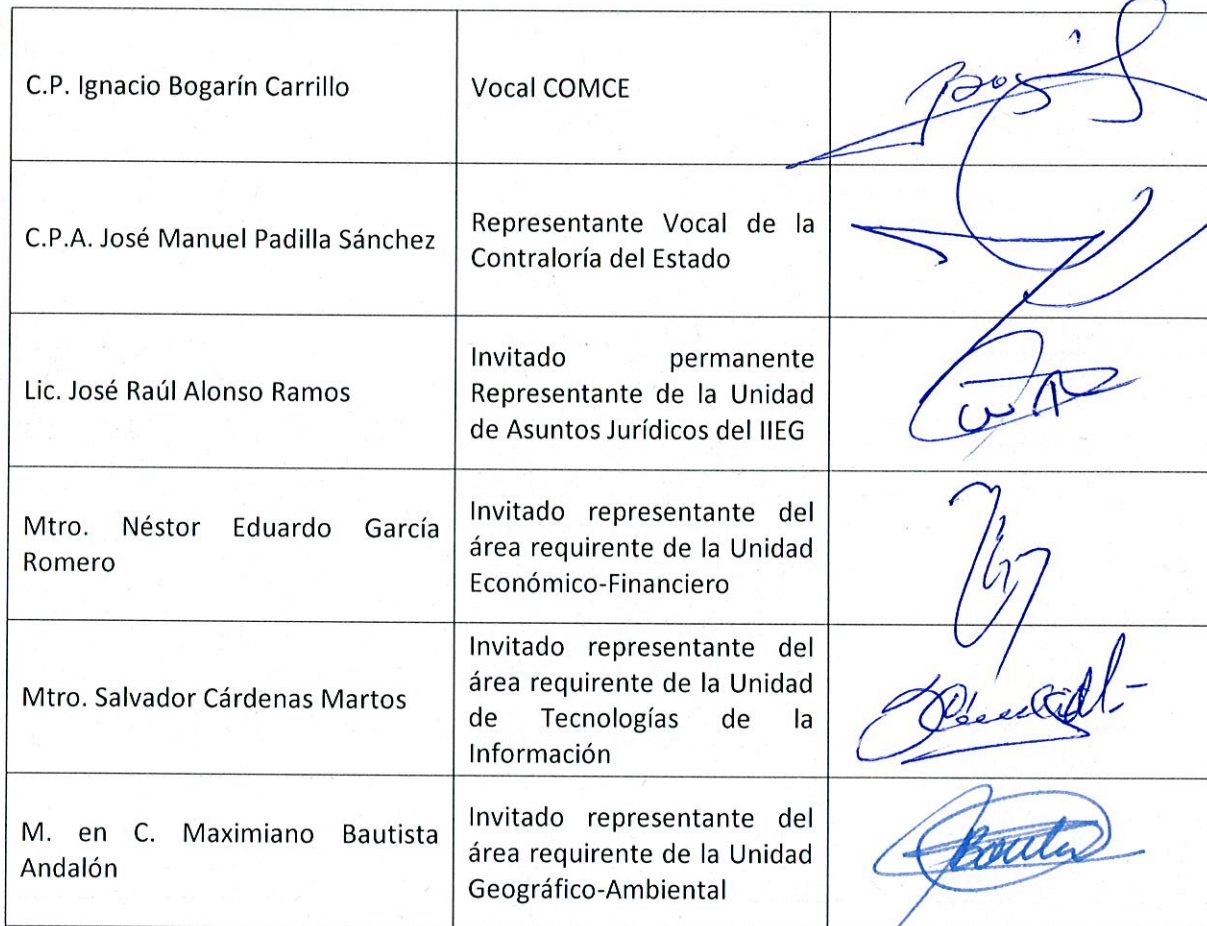 C.P. Ignacio Bogarín Carrillo
Vocal COMCE
C.P.A. José Manuel Padilla Sánchez
Representante Vocal de la
Contraloría del Estado
Lic. José Raúl Alonso Ramos
Invitado permanente
Representante de la Unidad
de Asuntos Jurídicos del IIEG
Mtro. Néstor Eduardo García
Romero
Invitado representante del
área requirente de la Unidad
Económico-Financiero
Mtro. Salvador Cárdenas Martos
Invitado representante del
área requirente de la Unidad
de Tecnologías de la
Información
M. en C. Maximiano Bautista
Andalón
Invitado representante del
área requirente de la Unidad
Geográfico-Ambiental